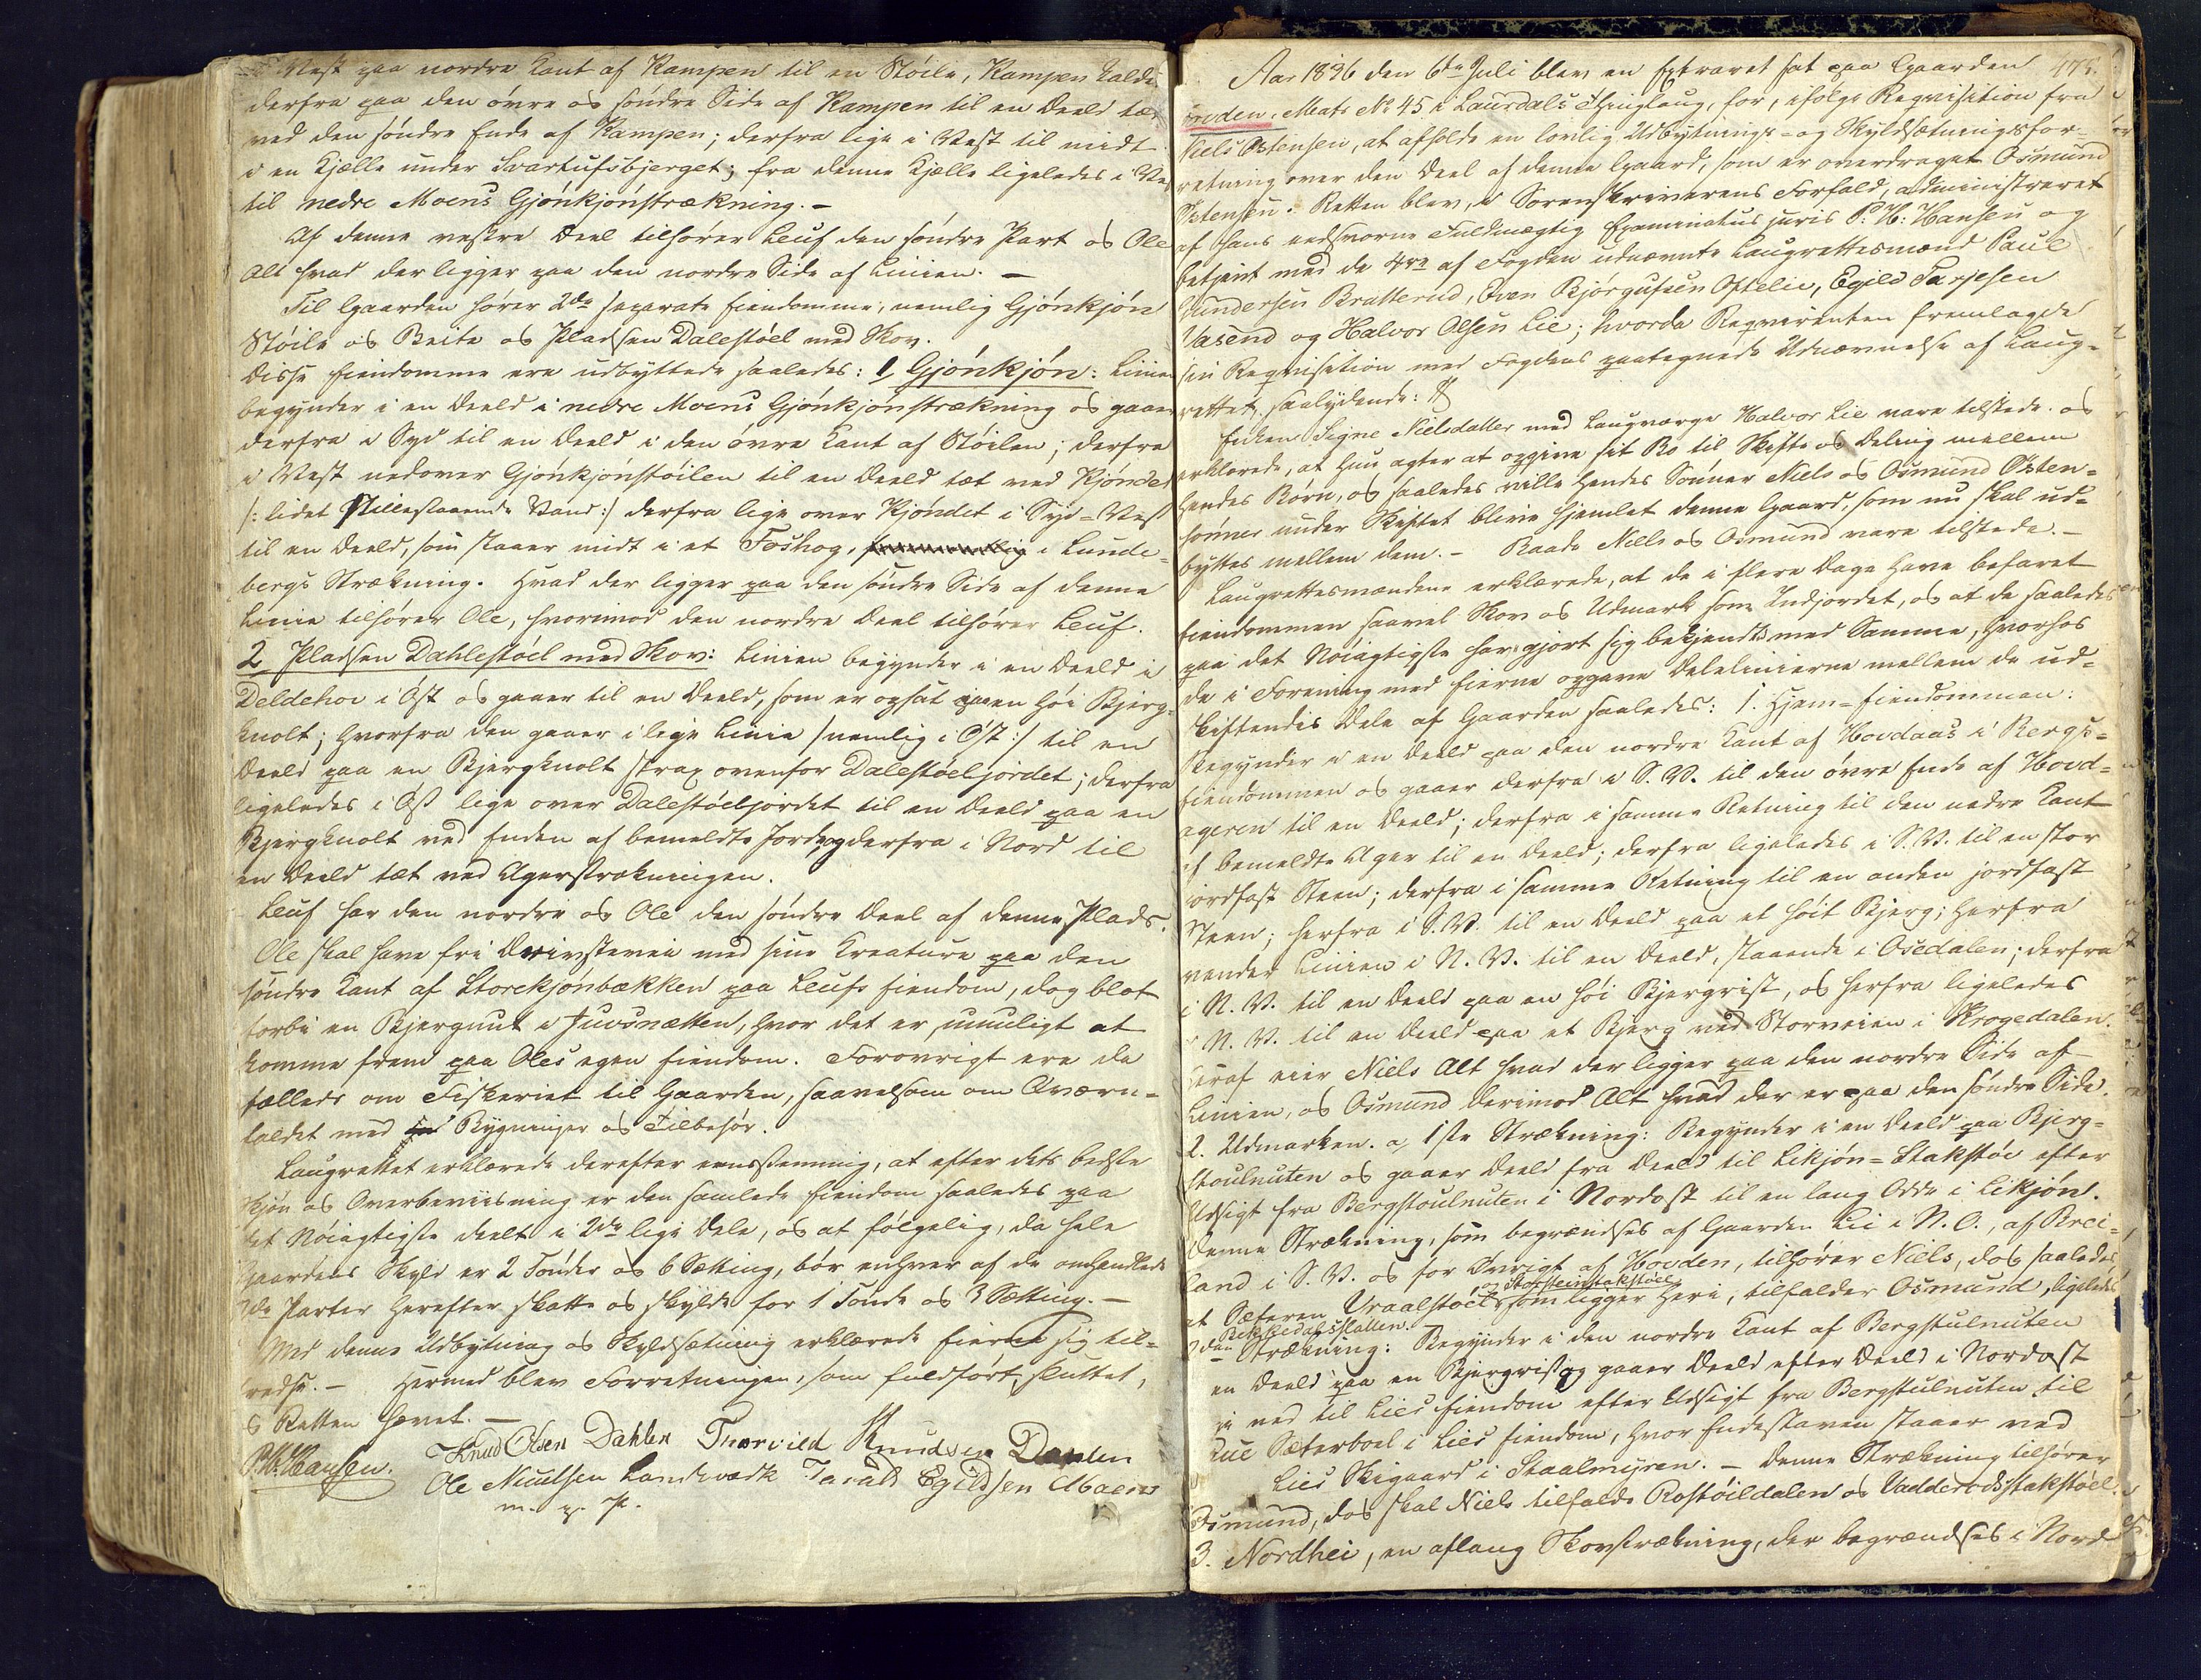 Vest paa nordre Kant af Kampen til en Støile, Kampen kaldt
derfra paa den øvre og søndre Side af Kampen til en Deeld tæt
ved den søndre Ende af Kampen; derfra lige i Vest til midt
i en Kjelle under Svartufsbjerget; fra denne Kjelle ligeledes i Vest
til nedre Moens Gjønkjønstrækning. –
Af denne vestre Deel tilhører Leuf den søndre Part og Ole
Alt hvad der ligger paa den nordre Side af Linien. –
Til Gaarden hører 2de separate Eiendomme, nemlig Gjønkjøn
Støile og Beite og Pladsen Dalestøel med Skov.
Disse Eiendomme ere udbyttede saaledes: 1, Gjønkjøn: Linien
begynder i en Deeld i nedre Moens Gjønkjønstrækning og gaaer
derfra i Syd til en Deeld i den øvre Kant af Støilen; derfra
i Vest nedover Gjønkjønstøilen til en Deeld tæt ved Kjøndet
/: lidet stillestaaende Vand:/ derfra lige over Kjøndet i Syd-Vest
til en Deeld, som staaer midt i et Foshog, i Lunde-
bergs Strækning. Hvad der ligger paa den søndre Side af denne
Linie tilhører Ole, hvorimod den nordre Deel tilhører Leuf.
2 Pladsen Dahlestøel med Skov: Linien begynder i en Deeld i
Deldehoe i Øst og gaaer til en Deeld, som er opsat paa en høi Bjerg-
knolt; hvorfra den gaaer i lige Linie /nemlig i Øst:/ til en
Deeld paa en Bjergknolt strax ovenfor Dalestøeljordet; derfra
ligeledes i Øst lige over Dalestøeljordet til en Deeld paa en
Bjergknolt ved Enden af bemeldte Jorde, og derfra i Nord til
en Deeld tæt ved Agerstrækningen.
Leuf har den nordre og Ole den søndre Deel af denne Plads.
Ole skal have fri Drivsteveie med sine Kreature paa den
søndre Kant af Storekjønbækken paa Leufs Eiendom, dog blot
forbi en Bjergnut i Juvsnætten, hvor det er umuligt at
komme frem paa Oles egen Eiendom. Forøvrigt ere de
fælleds om Fiskeriet til Gaarden, saavelsom om Qværn-
faldet med Bygninger og Tilbehør.
Laugrettet erklærede derefter eensstemmig, at efter dets bedste
Skjøn og Overbeviisning er den samlede Eiendom saaledes paa
det Nøiagtigste deelt i 2de lige Dele, og at følgelig, da hele
Gaardens Skyld er 2 Tønder og 6 Sætting, bør enhver af de omhandlede
2de Parter herefter skatte og skylde for 1 Tønde og 3 Sætting. –
Med denne Udbytning og Skyldsætning erklærede Eierne sig til-
fredse. – Hermed blev Forretningen, som fuldført, sluttet,
og Retten hævet. –
P. H. Hansen. Knud Olsen Dahlen Thorvild Knudsen Dahlen
Ole Nieulsen Landsvædk Tarald Egildsen Moene
m. p. P.
Aar 1826 den 6te Juli blev en Extraret sat paa Gaarden 475.
Hovden, Matr. No 45 i Laurdals Thinglaug, for, ifølge Reqvisition fra
Niels Østensen, at afholde en lovlig Udbytnings- og Skyldsætningsfor-
retning over den Deel af denne Gaard, som er overdraget Osmund
Østensen. Retten blev, i Sorenskriverens Forfald, administreret
af hans eedsvorne Fuldmægtig Examinatus juris P. H. Hansen og
betjent med de 4re af Fogden udnævnte Laugrettesmænd Paul
Gundersen Bratterud, Even Bjørgufsen Oftelie, Egild Tarjesen
Vasend og Halvor Olsen Lie; hvorda Reqvirenten fremlagde
sin Reqvisition med Fogdens paategnede Udnævnelse af Laug-
rettet, saalydende:
Enken Signe Nielsdatter med Laugværge Halvor Lie vare tilstede og
erklærede, at hun agter at opgive sit Bo til Skifte og Deling mellem
hendes Børn, og saaledes ville hendes Sønner Niels og Osmund Østen-
sønner under Skiftet blive hjemlet denne Gaard, som nu skal ud-
byttes mellem dem. – Baade Niels og Osmund vare tilstede. –
Laugrettesmændene erklærede, at de i flere Dage have befaret
Eiendommen saavel Skov og Udmark som Indjordet, og at de saaledes
paa det Nøiagtigste har gjort sig bekjendte med Samme, hvorhos
de i Forening med Eierne opgave Delelinierne mellem de ud-
skiftendes Dele af Gaarden saaledes: 1. Hjem-Eiendommen:
Begynder i en Deeld paa den nordre Kant af Hovdaas i Bergs-
Eiendommen og gaaer derfra i S. V. til den øvre Ende af Hovd-
ageren til en Deeld; derfra i samme Retning til den nedre Kant
af bemeldte Ager til en Deeld; derfra ligeledes i S. V. til en stor
jordfast Steen; derfra i samme Retning til en anden jordfast
Steen; herfra i S. V. til en Deeld paa et høit Bjerg; herfra
vender Linien i N. V. til en Deeld, staaende i Osedalen; derfra
i N. V. til en Deeld paa en høi Bjergrist, og herfra ligeledes
i N. V. til en Deeld paa et Bjerg ved Storveien i Krogedalen.
Heraf eier Niels Alt hvad der ligger paa den nordre Side af
Linien, og Osmund derimod Alt hvad der er paa den søndre Side.
2. Udmarken. a, 1ste Strækning: Begynder i en Deeld paa Bjerg-
stoulnuten og gaaer Deeld fra Deeld til Likjøn-Stakstøe efter
Udsigt fra Bergstoulnuten i Nordost til en lang Odde i Likjøn.
Denne Strækning, som begrændses af Gaarden Lii i N. O., af Brei-
land i S. V. og for Øvrigt af Hovden, tilhører Niels, dog saaledes
at Sæteren Vraalstoel og Storsteinstakstøel, som ligger heri, tilfalder Osmund, ligeledes
Rekskedalsslatten.
2den Strækning: Begynder i den nordre Kant af Bergstulnuten
en Deeld paa en Bjergrist og gaaer Deeld efter Deeld i Nordost
ned til Lies Eiendom efter Udsigt fra Bergstulnuten til
Sæterboel i Lies Eiendom, hvor Endestaven staaer ved
Lies Skigaard i Staalmyren. – Denne Strækning tilhører
Osmund, dog skal Niels tilfalde Rostøildalen og Vadderodsstakstøel.
3. Nordhei, en aflang Skovstrækning, der begrændses i Nord